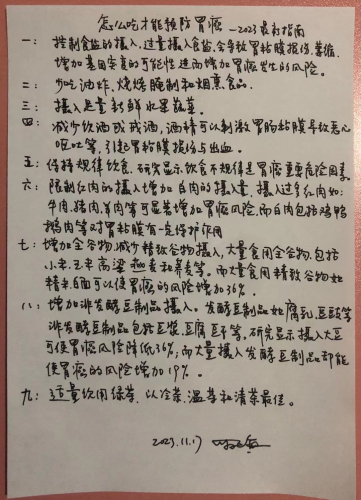 怎么吃才能预防胃癌—2023最新指南
一：控制食盐的摄入，过量摄入食盐会导致胃粘膜损伤、萎缩，
增加基因突变的可能性进而增加胃癌发生的风险。
二：少吃油炸，烧烤腌制和烟熏食品。
三：摄入足量新鲜水果蔬菜。
四：减少饮酒或戒酒，酒精可以刺激胃肠粘膜导致恶心
呕吐等，引起胃粘膜损伤与出血。
五：保持规律饮食，研究显示饮食不规律是胃癌重要危险因素
六：限制红肉的摄入增加白肉的摄入量，摄入过多红肉如：
牛肉、猪肉、羊肉等可显著增加胃癌风险，而白肉包括鸡鸭
鹅肉等对胃粘膜有一定保护作用
七：增加全谷物，减少精致谷物摄入，大量食用全谷物，包括
小米、玉米高粱燕麦和荞麦等。而大量食用精致谷物如
精米白面可以使胃癌的风险增加36%。
八：增加非发酵豆制品摄入。发酵豆制品如腐乳、豆豉等
非发酵豆制品包括豆浆、豆腐豆干等，研究显示摄入大豆
可使胃癌风险降低36%；而大量摄入发酵豆制品却能
使胃癌的风险增加19%。
九：适量饮用绿茶，以冷茶、温茶和清茶最佳。
2023.11.17